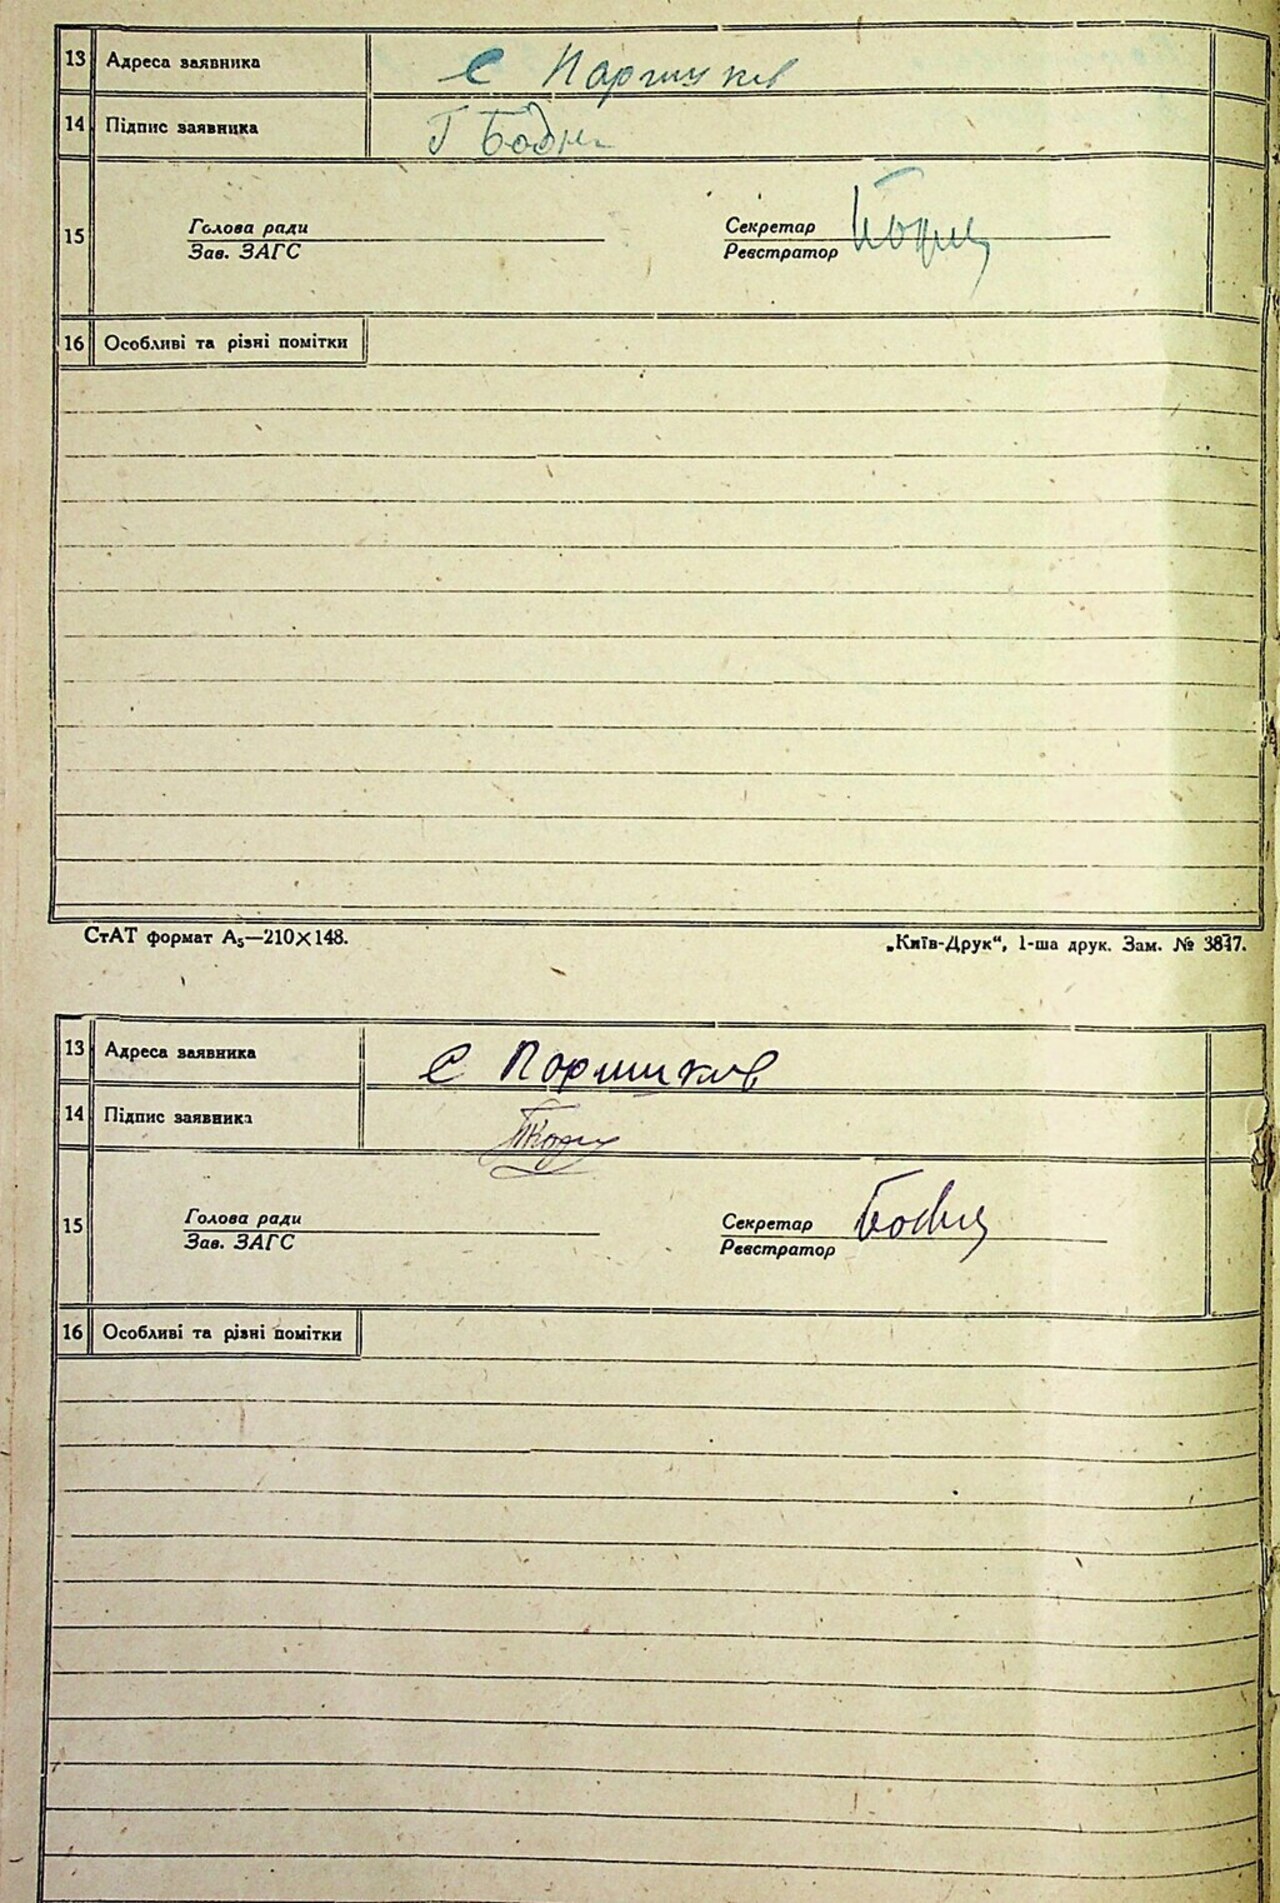 13 Адреса заявника с Паришків
14 Підпис заявника Г Бодн
15 Голова ради
Зав. ЗАГС
Секретар
Реєстратор
16 Особливі та різні помітки
СтАТ формат А₅—210×148.
„Київ-Друк“, 1-ша друк. Зам. №
13 Адреса заявника с Паришків
14 Підпис заявника
15 Голова ради
Зав. ЗАГС
Секретар
Реєстратор
16 Особливі та різні помітки